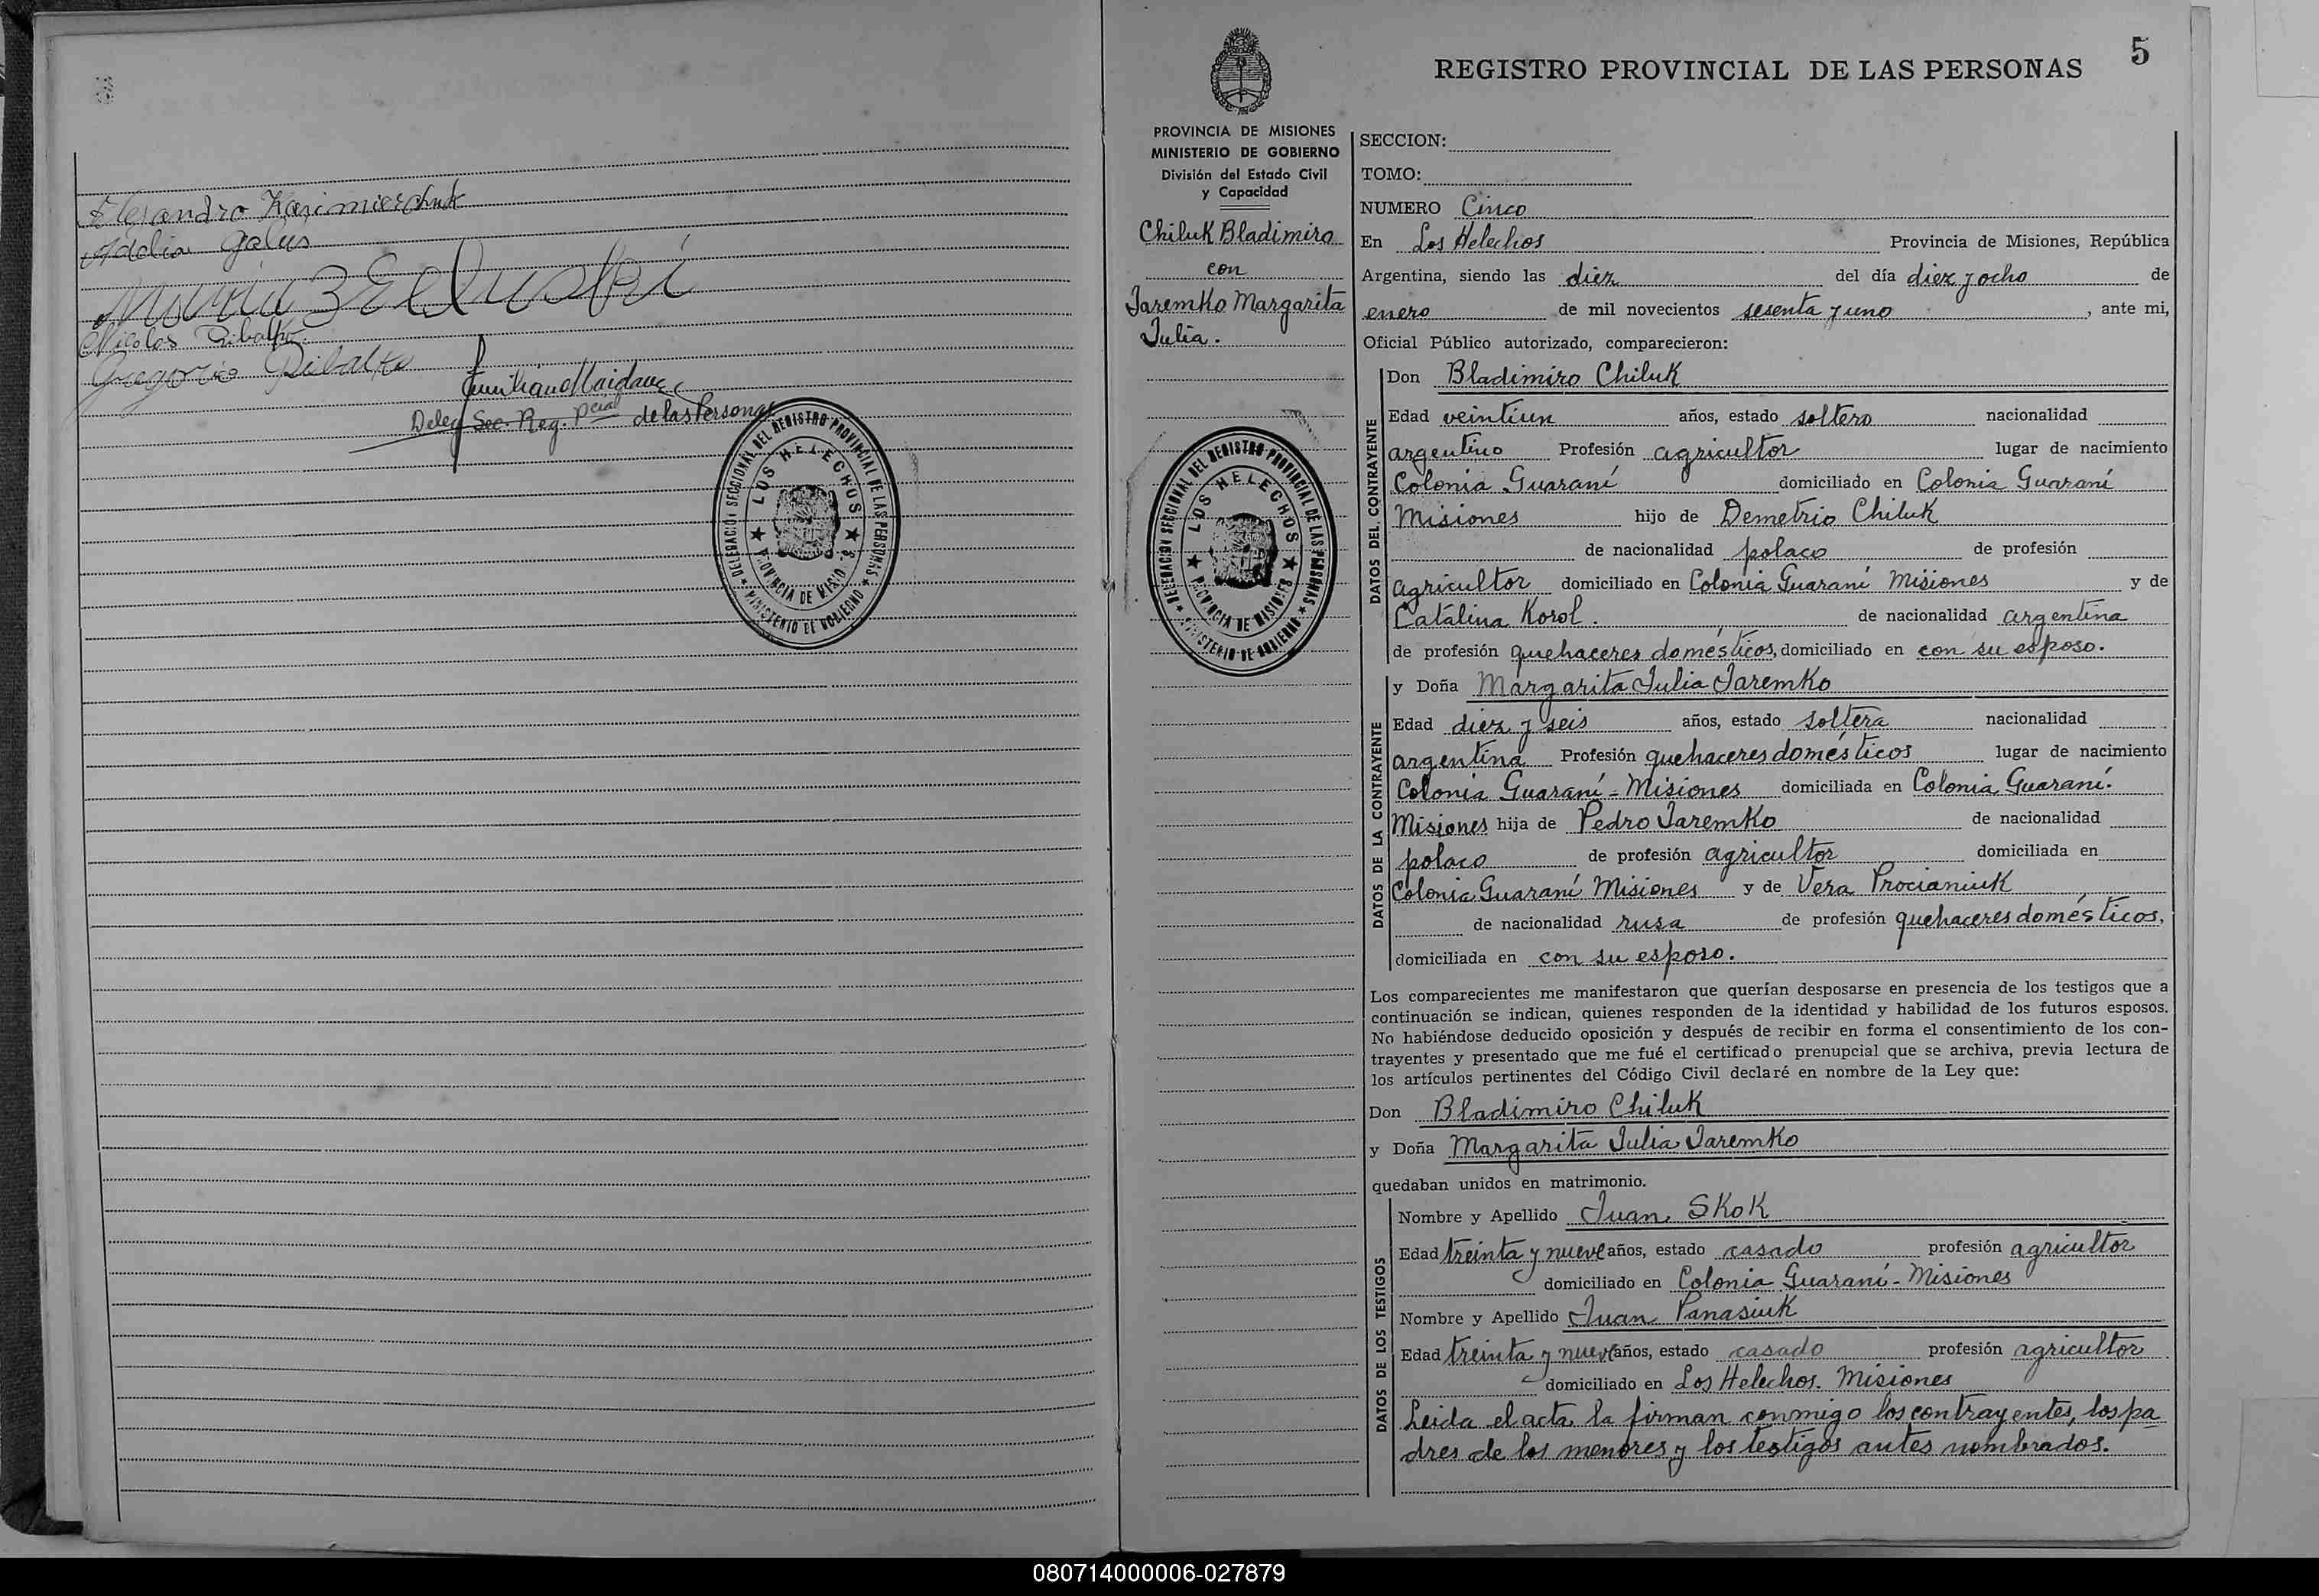 Alejandro Kazimierchuk
Adelia Galus
Maria Zelluski
Nicolas Ribalko
Gregorio Ribalko
Deleg. Sec. Reg. Pcial de las Personas
DELEGACION SECCIONAL DEL REGISTRO PROVINCIAL DE LAS PERSONAS
LOS HELECHOS
PROVINCIA DE MISIONES
MINISTERIO DE GOBIERNO
5
REGISTRO PROVINCIAL DE LAS PERSONAS
PROVINCIA DE MISIONES
MINISTERIO DE GOBIERNO
División del Estado Civil
y Capacidad
Chiluk Bladimiro
con
Jaremko Margarita
Julia.
DELEGACION SECCIONAL DEL REGISTRO PROVINCIAL DE LAS PERSONAS
LOS HELECHOS
PROVINCIA DE MISIONES
MINISTERIO DE GOBIERNO
SECCION:
TOMO:
NUMERO Cinco
En Los Helechos Provincia de Misiones, República
Argentina, siendo las diez del día diez y ocho de
enero de mil novecientos sesenta y uno, ante mi,
Oficial Público autorizado, comparecieron:
DATOS DEL CONTRAYENTE
Don Bladimiro Chiluk
Edad veintiun años, estado soltero nacionalidad
argentino Profesión agricultor lugar de nacimiento
Colonia Guaraní domiciliado en Colonia Guaraní
Misiones hijo de Demetrio Chiluk
de nacionalidad polaco de profesión
agricultor domiciliado en Colonia Guaraní Misiones y de
Catalina Korol. de nacionalidad argentina
de profesión quehaceres domésticos, domiciliado en con su esposo.
DATOS DE LA CONTRAYENTE
y Doña Margarita Julia Jaremko
Edad diez y seis años, estado soltera nacionalidad
argentina Profesión quehaceres domésticos lugar de nacimiento
Colonia Guaraní - Misiones domiciliada en Colonia Guaraní.
Misiones hija de Pedro Jaremko de nacionalidad
polaco de profesión agricultor domiciliada en
Colonia Guaraní Misiones y de Vera Procianiuk
de nacionalidad rusa de profesión quehaceres domésticos,
domiciliada en con su esposo.
Los comparecientes me manifestaron que querían desposarse en presencia de los testigos que a
continuación se indican, quienes responden de la identidad y habilidad de los futuros esposos.
No habiéndose deducido oposición y después de recibir en forma el consentimiento de los con-
trayentes y presentado que me fué el certificado prenupcial que se archiva, previa lectura de
los artículos pertinentes del Código Civil declaré en nombre de la Ley que:
Don Bladimiro Chiluk
y Doña Margarita Julia Jaremko
quedaban unidos en matrimonio.
DATOS DE LOS TESTIGOS
Nombre y Apellido Juan Skok
Edad treinta y nueve años, estado casado profesión agricultor
domiciliado en Colonia Guaraní - Misiones
Nombre y Apellido Juan Panasiuk
Edad treinta y nueve años, estado casado profesión agricultor
domiciliado en Los Helechos. Misiones
Leida el acta la firman conmigo los contrayentes, los pa
dres de los menores y los testigos antes nombrados.
080714000006-027879